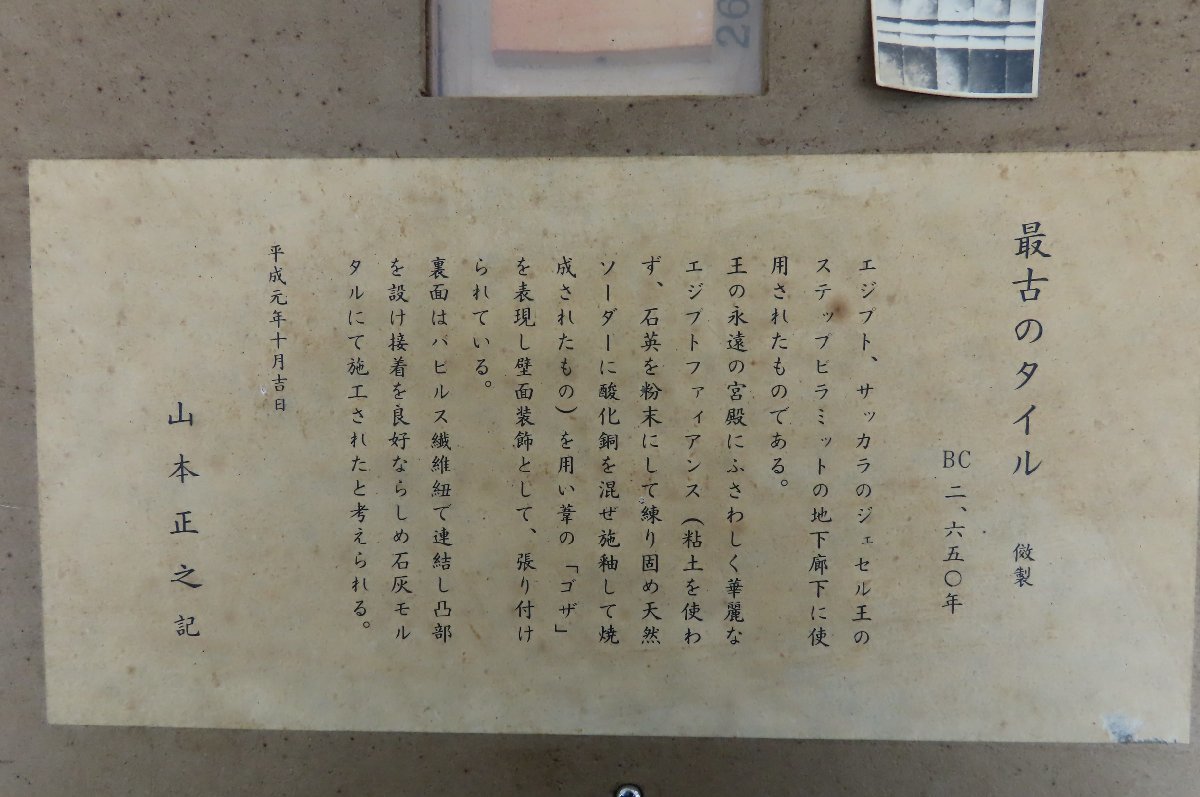 最古のタイル 倣製
BC二、六五〇年
エジプト、サッカラのジェセル王の
ステップピラミットの地下廊下に使
用されたものである。
王の永遠の宮殿にふさわしく華麗な
エジプトファイアンス(粘土を使わ
ず、石英を粉末にして練り固め天然
ソーダーに酸化銅を混ぜ施釉して焼
成されたもの)を用い葦の「ゴザ」
を表現し壁面装飾として、張り付け
られている。
裏面はパピルス繊維紐で連結し凸部
を設け接着を良好ならしめ石灰モル
タルにて施工されたと考えられる。
平成元年十月吉日
山本正之記
26